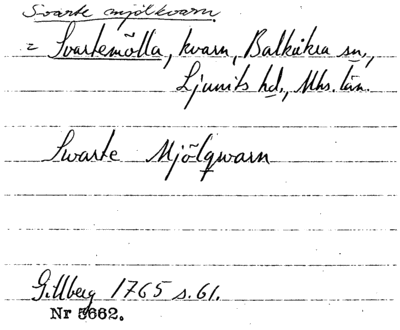 Svarte mjölkvarn
= Svartemölla, kvarn, Balkåkra sn.,
Ljunits hd., Mhs. län.
Swarte Mjölqwarn
Gillberg 1765 s. 61.
Nr 5662.